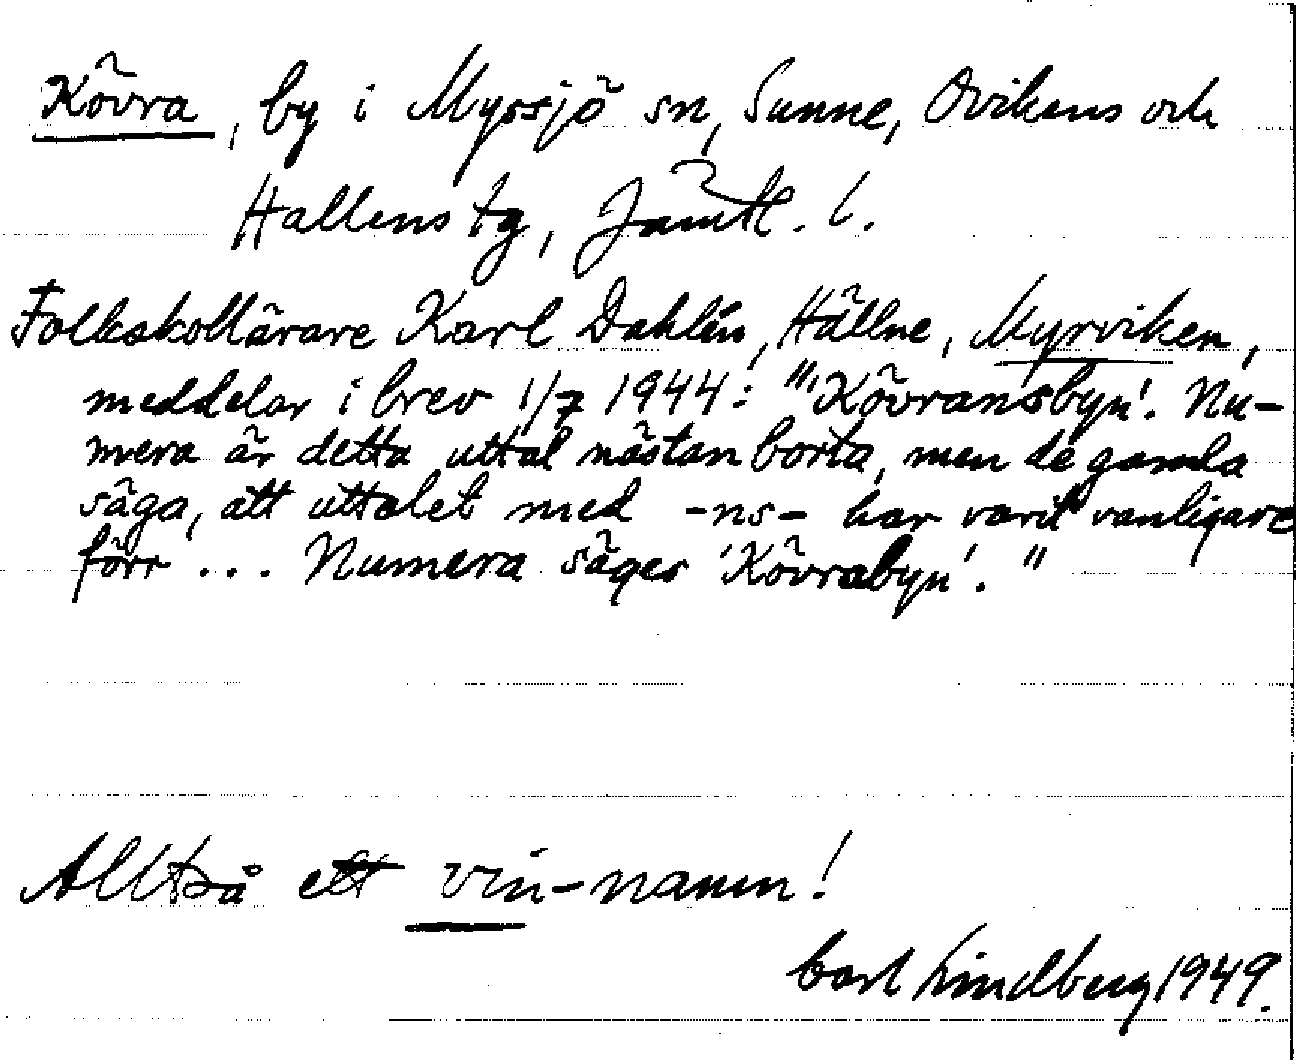 Kövra, by i Myssjö sn, Sunne, Ovikens och
Hallens tg, Jämtl. l.
Folkskollärare Karl Dahlén, Hällne, Myrviken,
meddelar i brev 1/7 1944: "'Kövransbyn'. Nu-
mera är detta uttal nästan borta, men de gamla
säga, att uttalet med -ns- har varit vanligare
förr ... Numera säges 'Kövrabyn'."
Alltså ett vin-namn!
Carl Lindberg 1949.